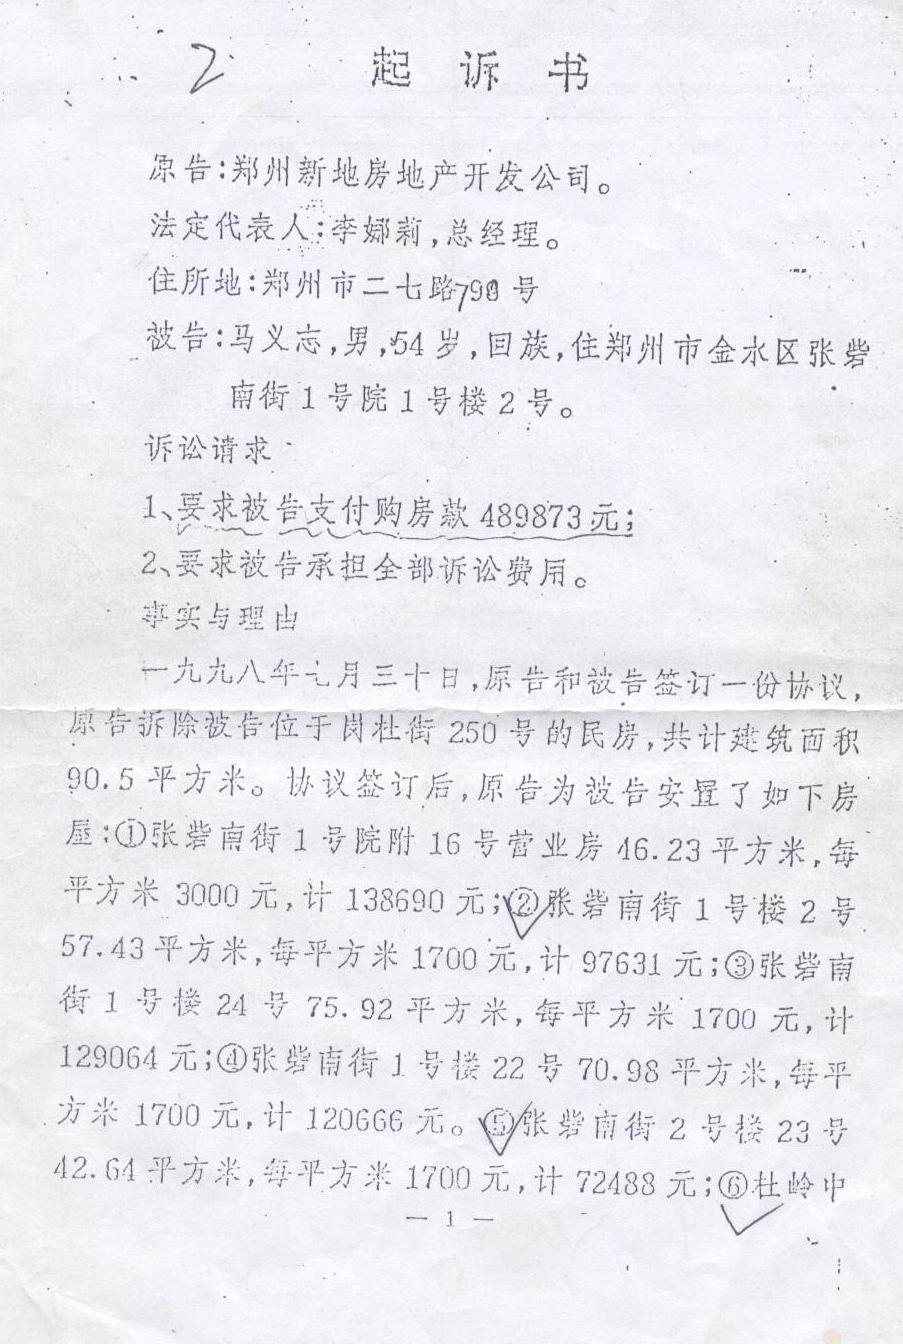 2
起诉书
原告:郑州新地房地产开发公司。
法定代表人:李娜莉,总经理。
住所地:郑州市二七路790号
被告:马义志,男,54岁,回族,住郑州市金水区张砦
南街1号院1号楼2号。
诉讼请求
1、要求被告支付购房款489873元;
2、要求被告承担全部诉讼费用。
事实与理由
一九九八年七月三十日,原告和被告签订一份协议,
原告拆除被告位于岗杜街250号的民房,共计建筑面积
90.5平方米。协议签订后,原告为被告安置了如下房
屋:①张砦南街1号院附16号营业房46.23平方米,每
平方米3000元,计138690元;②张砦南街1号楼2号
57.43平方米,每平方米1700元,计97631元;③张砦南
街1号楼24号75.92平方米,每平方米1700元,计
129064元;④张砦南街1号楼22号70.98平方米,每平
方米1700元,计120666元。⑤张砦南街2号楼23号
42.64平方米,每平方米1700元,计72488元;⑥杜岭中
—1—